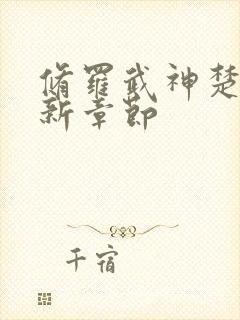 脩羅武神楚
新章節
千宿